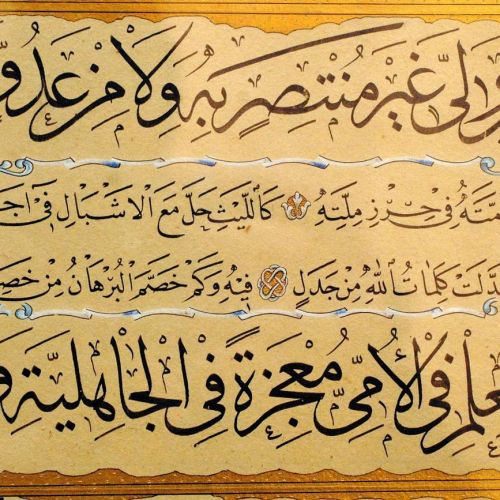 وَلِيٍّ غَيْرِ مُنْتَصِرٍ بِهِ وَلَا مِنْ عَدُوٍّ
ـتَهُ فِي حِرْزِ مِلَّتِهِ كَاللَّيْثِ حَلَّ مَعَ الْاَشْبَالِ فِي اَجَـ
ـدَّلَتْ كَلِمَاتُ اللهِ مِنْ جَدَلٍ فِيهِ وَكَمْ خَصَمَ الْبُرْهَانُ مِنْ خَصِـ
ـعِلْمِ فِي الْأُمِّيِّ مُعْجِزَةً فِي الْجَاهِلِيَّةِ وَ